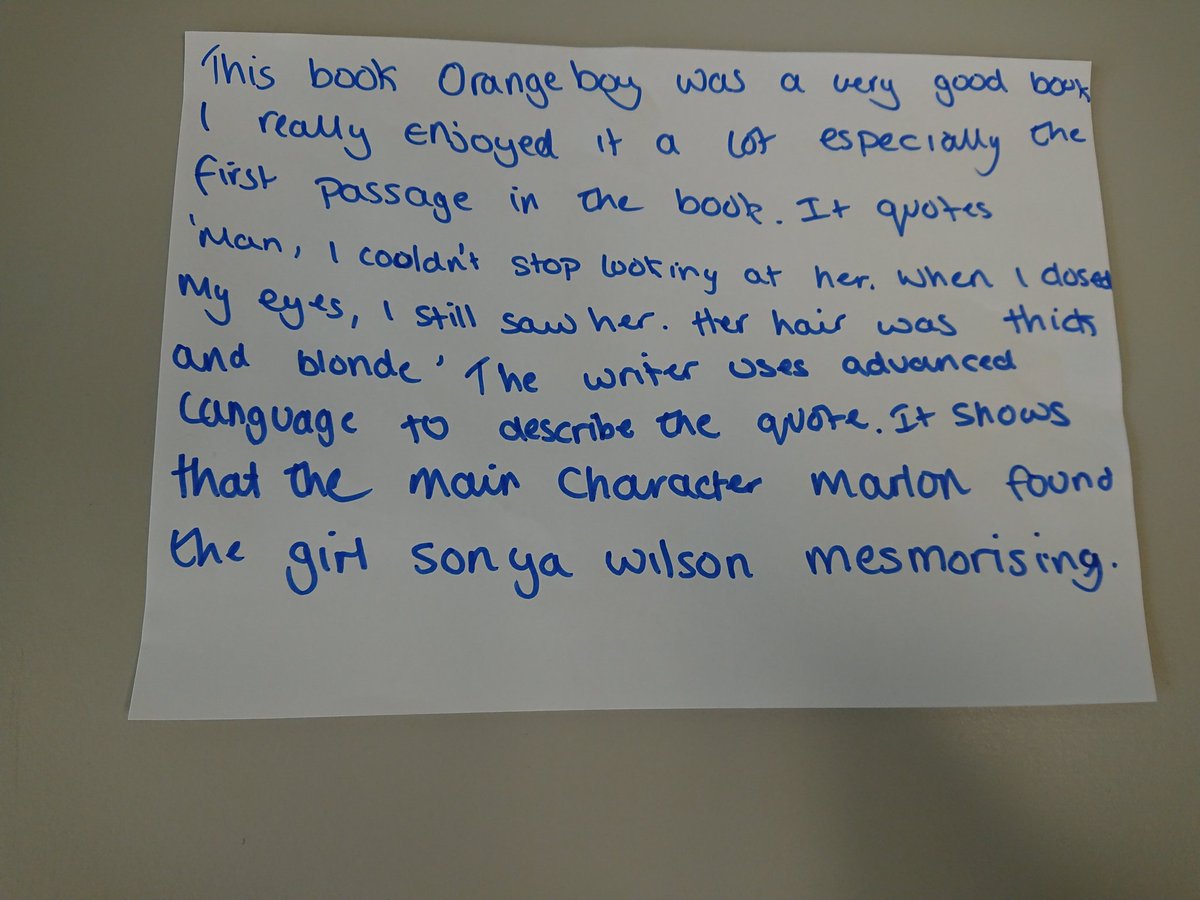 This book Orangeboy was a very good book
I really enjoyed it a lot especially the
first passage in the book. It quotes
'Man, I cooldn't stop looking at her. When I closed
My eyes, I still saw her. Her hair was thick
and blonde' The writer uses advanced
language to describe the quote. It shows
that the main character marlon found
the girl sonya wilson mesmorising.